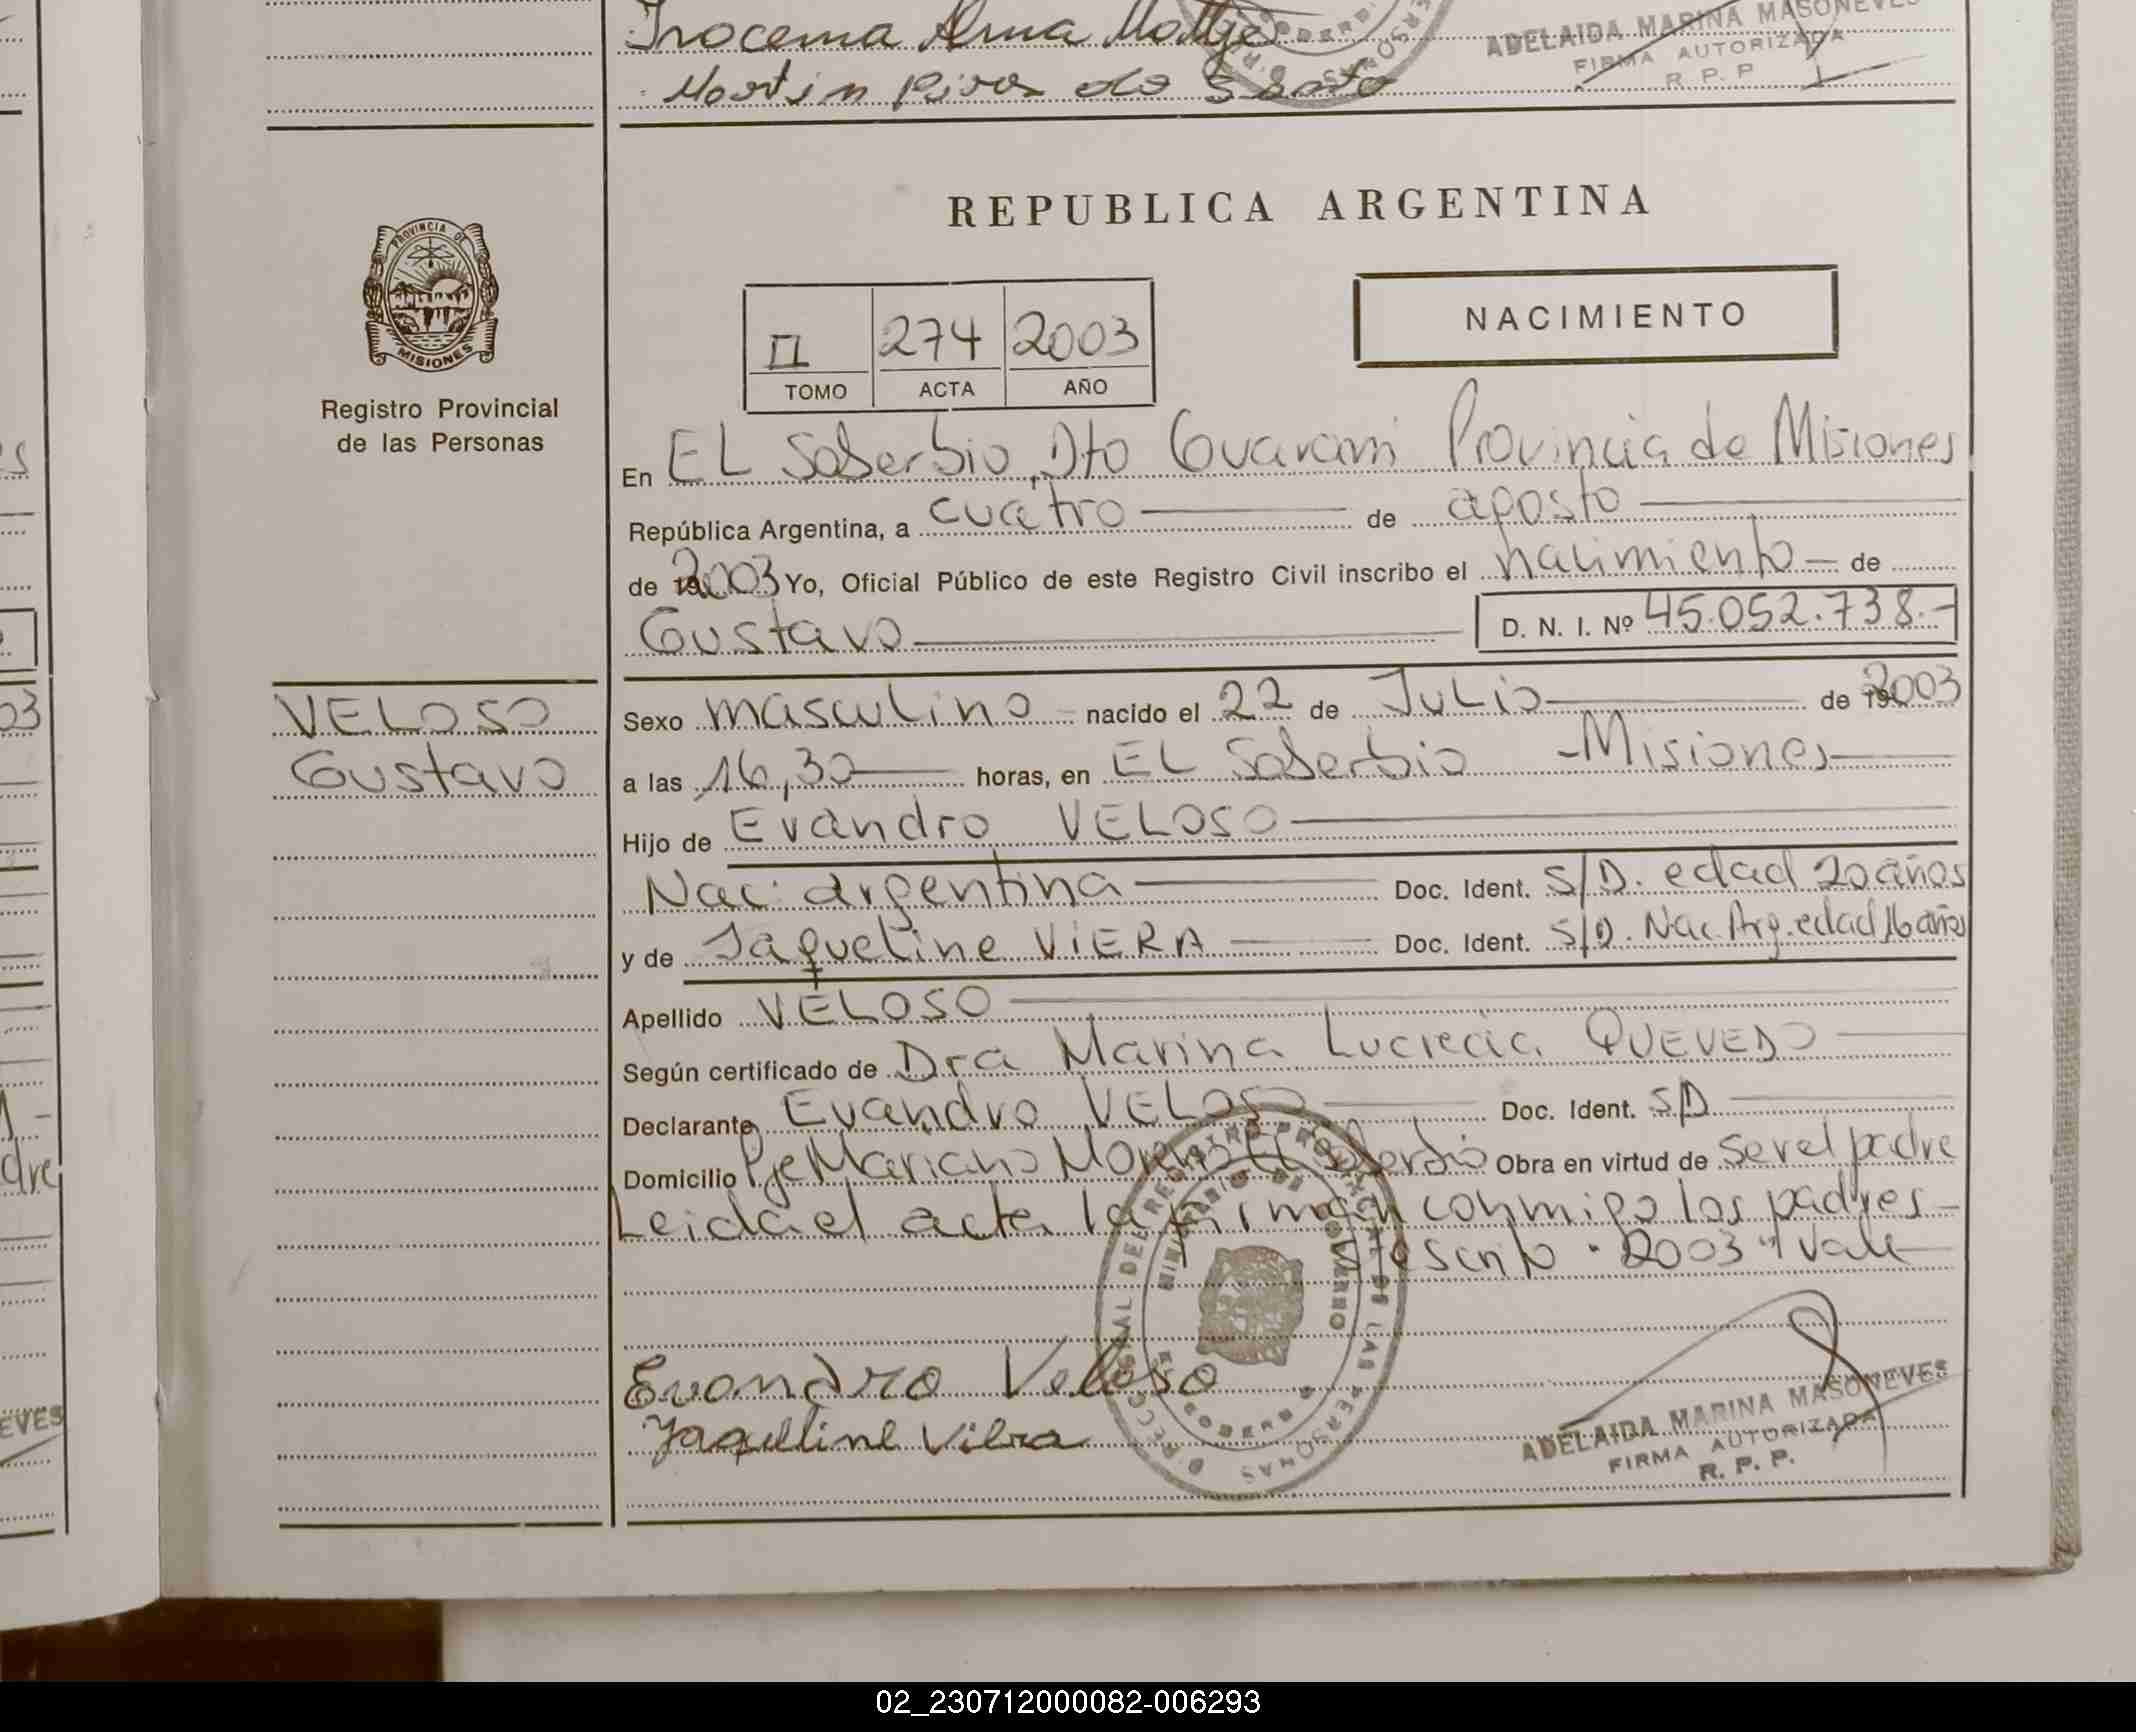 Irocema Anna Mattje
Martin Piroz do Santo
ADELAIDA MARINA MASONEVES
FIRMA AUTORIZADA
R. P. P.
PROVINCIA DE
MISIONES
Registro Provincial
de las Personas
REPUBLICA ARGENTINA
II 274 2003
TOMO ACTA AÑO
NACIMIENTO
En EL Soberbio, Dto Guarani Provincia de Misiones
República Argentina, a cuatro de agosto
de 2003 Yo, Oficial Público de este Registro Civil inscribo el nacimiento de
Gustavo D. N. I. Nº 45.052.738.-
VELOSO
Gustavo
Sexo masculino nacido el 22 de Julio de 2003
a las 16,30 horas, en EL Soberbio - Misiones
Hijo de Evandro VELOSO
Nac: argentina Doc. Ident. S/D. edad 20 años
y de Jaqueline VIERA Doc. Ident. S/D. Nac Arg. edad 16 años
Apellido VELOSO
Según certificado de Dra Marina Lucrecia QUEVEDO
Declarante Evandro VELOSO Doc. Ident. S/D
Domicilio Pje Mariano Moreno El Soberbio Obra en virtud de ser el padre
Leida el acta la firman conmigo los padres -
2003 " Vale
DIRECCION GENERAL DEL REGISTRO PROVINCIAL DE LAS PERSONAS
MINISTERIO DE GOBIERNO
EL SOBERBIO
Evandro Veloso
Jaqueline Viera
ADELAIDA MARINA MASONEVES
FIRMA AUTORIZADA
R. P. P.
EVES
dre
03
02_230712000082-006293